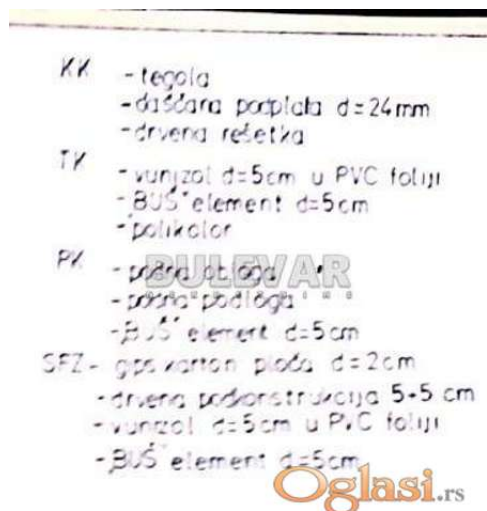 KK - tegola
- daščana podplata d=24mm
- drvena rešetka
TK - vunizol d=5cm u PVC foliji
- "BUŠ" element d=5cm
- polikolor
PK - podna obloga
BULEVAR
- podna podloga
- "BUŠ" element d=5cm
SFZ - gps karton ploča d=2cm
- drvena podkonstrukcija 5+5 cm
- vunizol d=5cm u PVC foliji
- "BUŠ" element d=5cm
Oglasi.rs